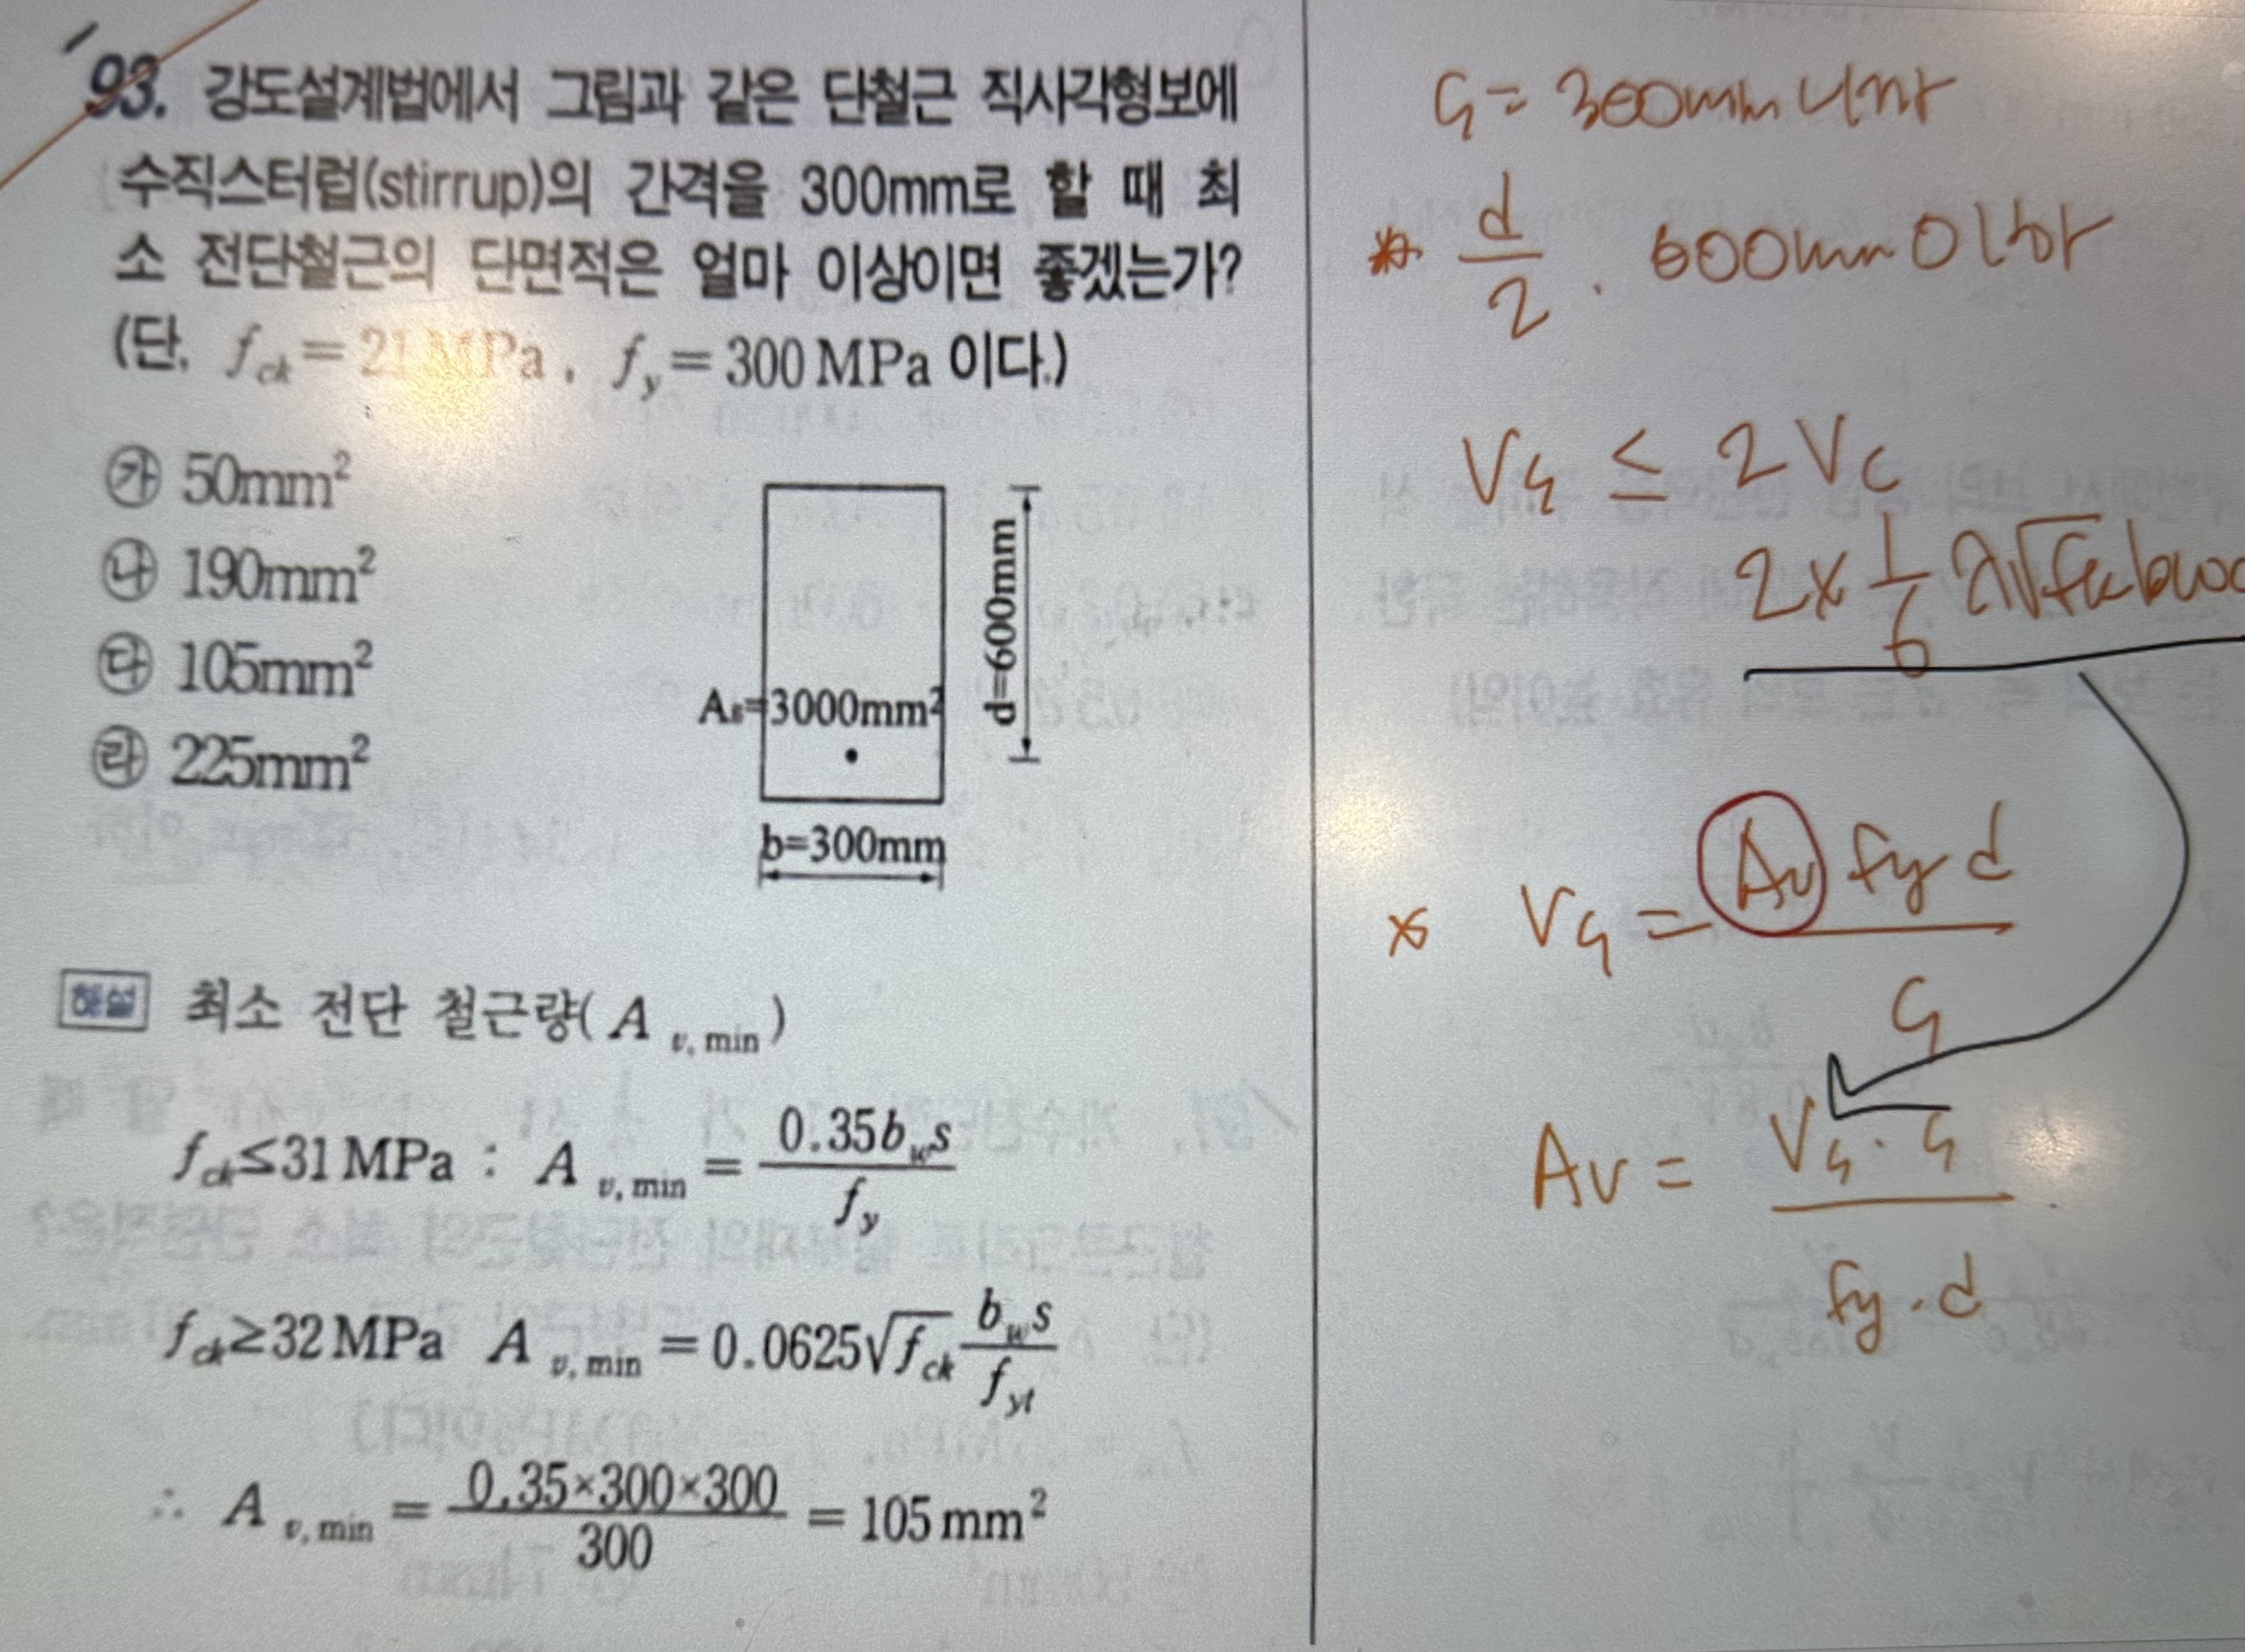 93. 강도설계법에서 그림과 같은 단철근 직사각형보에
수직스터럽(stirrup)의 간격을 300mm로 할 때 최
소 전단철근의 단면적은 얼마 이상이면 좋겠는가?
(단, f_ck = 21 MPa, f_y = 300 MPa 이다.)
㉮ 50mm²
㉯ 190mm²
㉰ 105mm²
㉱ 225mm²
d=600mm
As=3000mm²
b=300mm
해설 최소 전단 철근량(A_v,min)
f_ck≤31 MPa : A_v,min = 0.35b_w s / f_y
f_ck≥32 MPa A_v,min = 0.0625√f_ck b_w s / f_yt
∴ A_v,min = 0.35×300×300 / 300 = 105 mm²
S = 300mm
d/2 . 600mm 이하
Vs ≤ 2Vc
2 × 1/6 λ√fck bwd
Vs = Av fy d / S
Av = Vs · S / fy · d